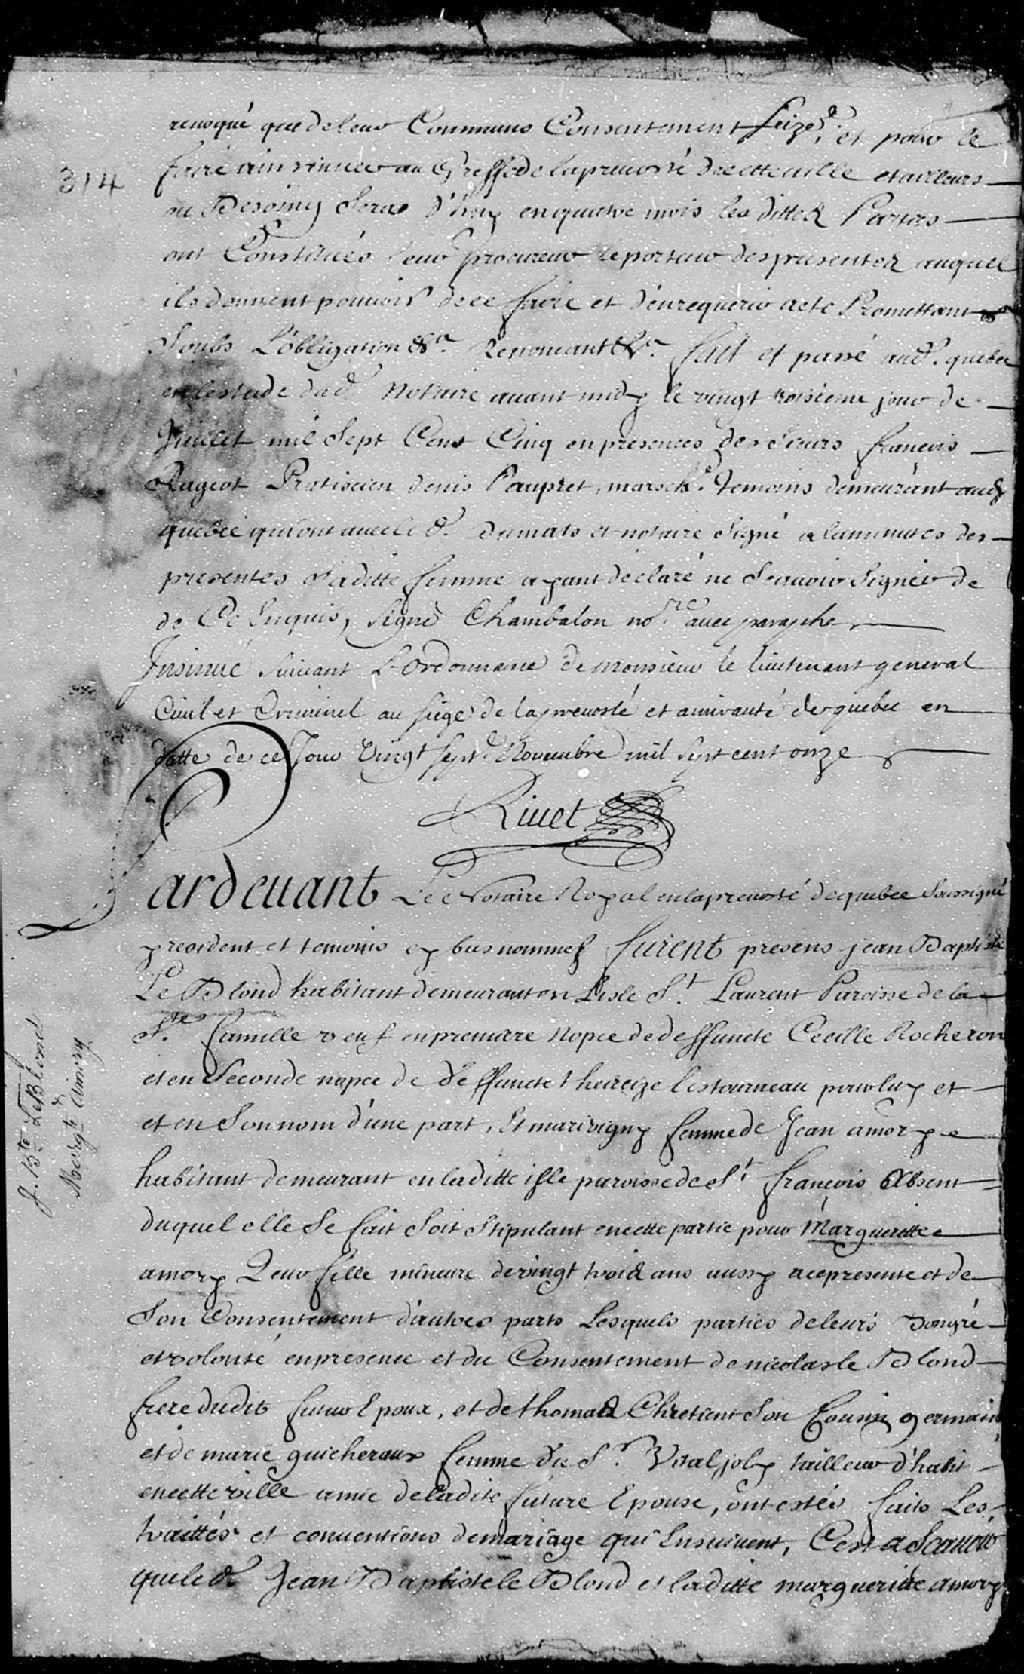 revoqué que de leur Commune Consentement et pour le
314
faire ainsinuer au Greffe de la prevosté de cette ville et ailleurs
ou Besoing Sera d'huy en quatre mois les dittes Parties
ont Constitués leur procureur le porteur des presentes auquel
ils donnent pouvoir de ce faire et d'en requerir acte Promettant
Soubs L'obligation &a. Renonceant &a. fait et passé aud. quebec
en lestude dud. Notaire avant midy le vingt troisieme jour de
Juillet mil Sept Cent Cinq en presences des Sieurs francois
Rageot Praticien denis Paupret, march. Temoins demeurant aud
quebec qui ont avec led. et notaire Signé a la minutte des
presentes Laditte femme ayant declaré ne Scavoir Signer de
de Ce Enquis, Signé Chambalon nore. avec paraphe
Insinué Suivant L'ordonnance de monsieur le lieutenant general
Civil et Criminel au siege de la prevosté et amirauté de quebec en
datte de ce Jour vingt Septe. Novembre mil Sept cent onze
Rivet
Pardevant Le Notaire Royal en la prevosté de quebec Soussigné
y resident et temoins cy bas nommez furent presens jean Baptiste
Le Blond habitant demeurant en Lisle St. Laurent Paroisse de la
Ste. famille veuf en premiere Nopce de deffuncte Cecille Rocheron
et en Seconde nopce de deffuncte thereize Lestourneau pour luy et
et en Son nom d'une part, Et marie vigny femme de Jean amory
habitant demeurant en laditte isle paroisse de St francois Absent
duquel elle Se fait Soit Stipulant en cette partie pour Margueritte
amory Leur fille mineure de vingt trois ans aussy a ce presente et de
Son Consentement d'autres parts Lesquels parties de leurs bongré
et volonté en presence et du Consentement de nicolas le Blond
frere dudit futur Epoux, et de thomas Chretient Son Cousin germain
et de marie guicheraux femme du Sr. Vital joly tailleur d'habit
en cette ville amie de ladite future Epouse, ont estés faits Les
traittés et conventions de mariage qui Ensuivent, C'est a Scavoir
que led. Jean Baptiste le Blond et laditte margueritte amory
J. Bte. LeBlond
&
Margte. Aimory